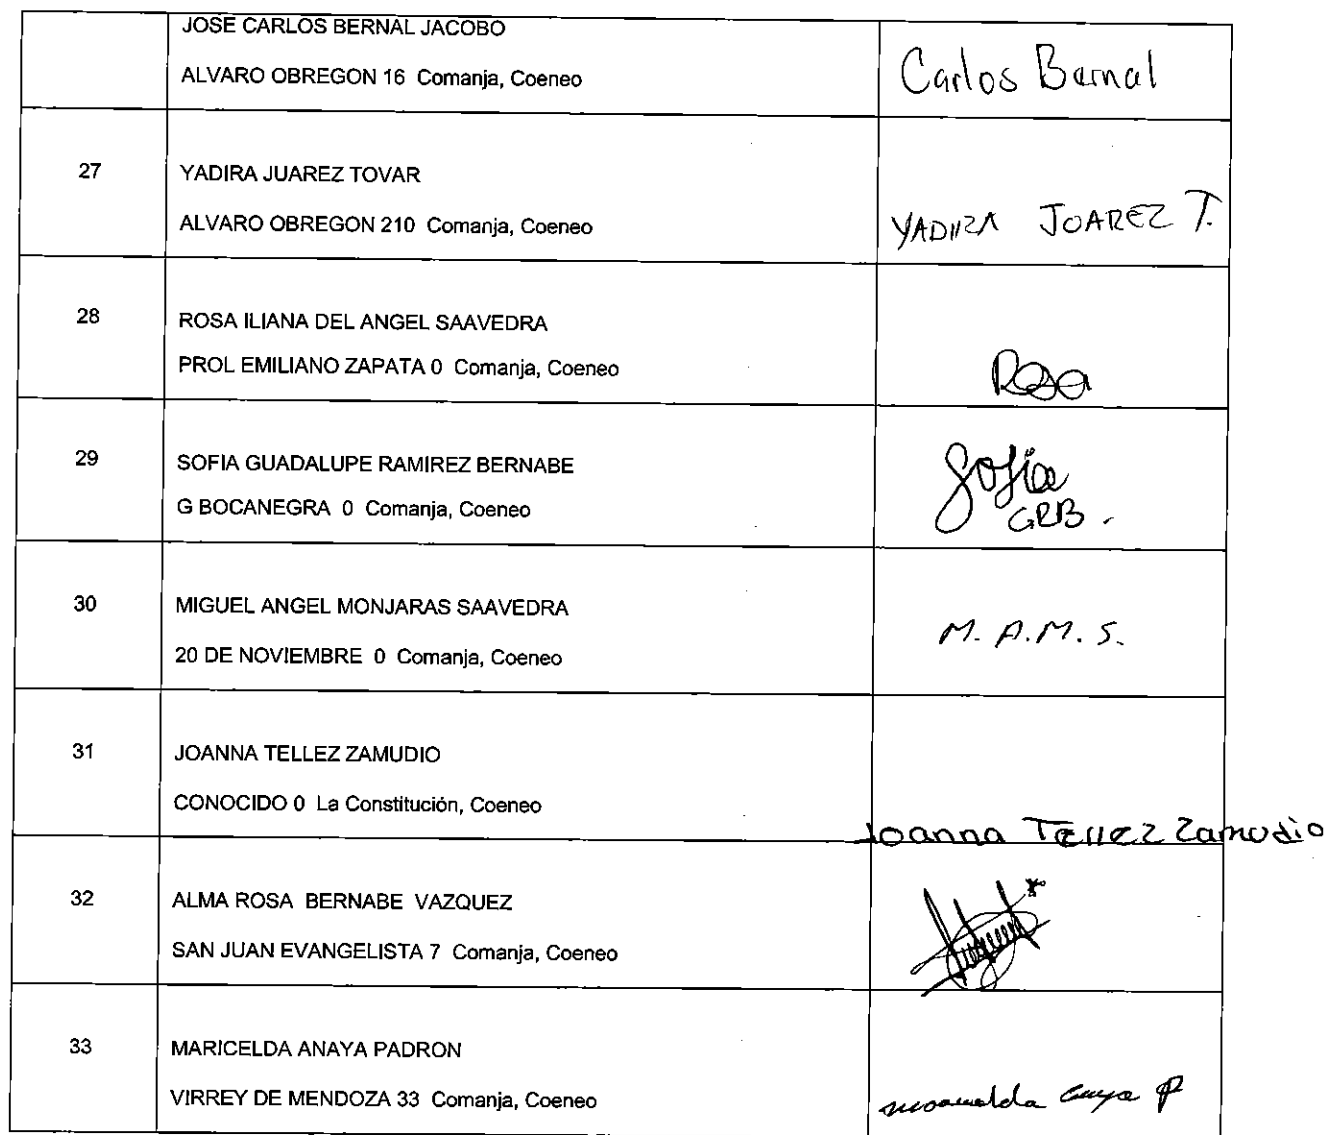 JOSE CARLOS BERNAL JACOBO
ALVARO OBREGON 16 Comanja, Coeneo
Carlos Bernal
27
YADIRA JUAREZ TOVAR
ALVARO OBREGON 210 Comanja, Coeneo
YADIRA JOAREZ T.
28
ROSA ILIANA DEL ANGEL SAAVEDRA
PROL EMILIANO ZAPATA 0 Comanja, Coeneo
Rosa
29
SOFIA GUADALUPE RAMIREZ BERNABE
G BOCANEGRA 0 Comanja, Coeneo
Sofia
GRB.
30
MIGUEL ANGEL MONJARAS SAAVEDRA
20 DE NOVIEMBRE 0 Comanja, Coeneo
M. A. M. S.
31
JOANNA TELLEZ ZAMUDIO
CONOCIDO 0 La Constitución, Coeneo
Joanna Tellez Zamudio
32
ALMA ROSA BERNABE VAZQUEZ
SAN JUAN EVANGELISTA 7 Comanja, Coeneo
33
MARICELDA ANAYA PADRON
VIRREY DE MENDOZA 33 Comanja, Coeneo